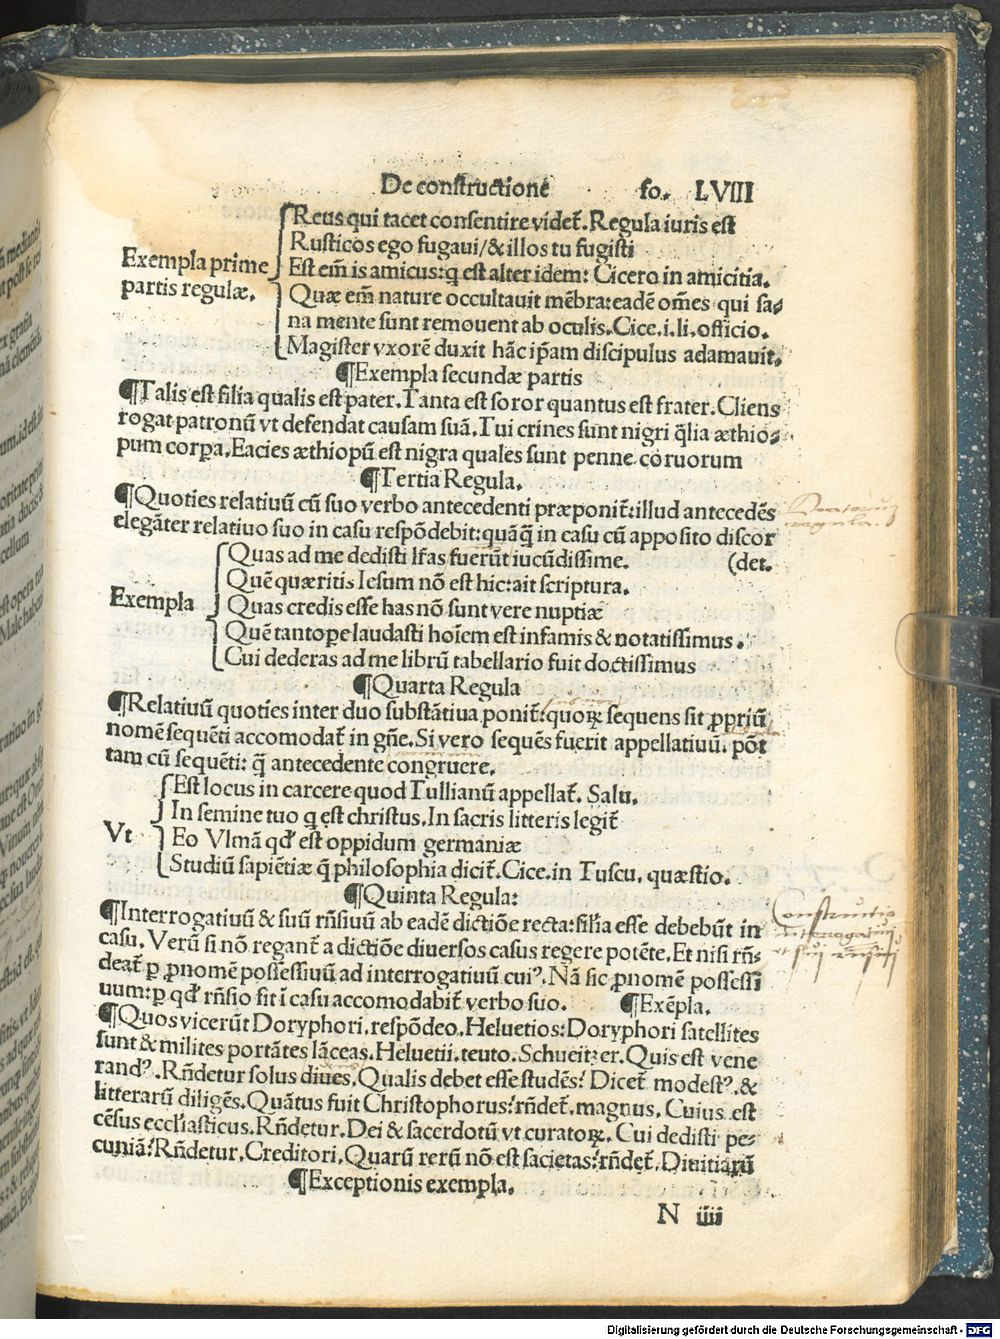 De constructione fo. LVIII
Reus qui tacet consentire videt̄. Regula iuris est
Rusticos ego fugaui/ & illos tu fugisti
Exempla prime
partis regulæ.
Est em̄ is amicus: q̄ est alter idem: Cicero in amicitia.
Quæ em̄ nature occultauit mēbra: eadē om̄es qui sa⸗
na mente sunt remouent ab oculis. Cice. i. li. officio.
Magister vxorē duxit hāc ip̄am discipulus adamauit.
¶Exempla secundæ partis
¶Talis est filia qualis est pater. Tanta est soror quantus est frater. Cliens
rogat patronū vt defendat causam suā. Tui crines sunt nigri q̄lia æthio⸗
pum corꝑa. Eacies æthiopū est nigra quales sunt penne coruorum
¶Tertia Regula.
¶Quoties relatiuū cū suo verbo antecedenti præponit̄: illud antecedēs
elegāter relatiuo suo in casu respōdebit: quāq̄ in casu cū apposito discor
(det.
Quas ad me dedisti lr̄as fuerūt iucūdissime.
Quē quæritis Iesum nō est hic: ait scriptura.
Exempla
Quas credis esse has nō sunt vere nuptiæ
Quē tantoꝑe laudasti hoīem est infamis & notatissimus.
Cui dederas ad me librū tabellario fuit doctissimus
¶Quarta Regula
¶Relatiuū quoties inter duo substātiua ponit̄: quoꝝ sequens sit ꝓpriū
nomē sequēti accomodat̄ in gn̄e. Si vero sequēs fuerit appellatiuū. pōt
tam cū sequēti: q̄ antecedente congruere.
Est locus in carcere quod Tullianū appellat̄. Salu.
In semine tuo q̄ est christus. In sacris litteris legit̄
Vt
Eo Vlmā qd̄ est oppidum germaniæ
Studiū sapiētiæ q̄ philosophia dicit̄. Cice. in Tuscu. quæstio.
¶Quinta Regula:
¶Interrogatiuū & suū rn̄siuū ab eadē dictiōe recta: silīa esse debebūt in
casu. Verū si nō regant̄ a dictiōe diuersos casus regere potēte. Et nisi rn̄⸗
deat̄ ꝑ ꝓnomē possessiuū ad interrogatiuū cuiꝰ. Nā sic ꝓnomē possessi
uum: ꝑ qd̄ rn̄sio fit ī casu accomodabit̄ verbo suo. ¶Exēpla.
¶Quos vicerūt Doryphori. respōdeo. Heluetios: Doryphori satellites
sunt & milites portātes lāceas. Heluetii. teuto. Schueitzer. Quis est vene
randꝰ. Rn̄detur solus diues. Qualis debet esse studēs? Dicet̄ modestꝰ. &
litterarū diligēs. Quātus fuit Christophorus? rn̄det̄. magnus. Cuius est
cēsus eccl̄iasticus. Rn̄detur. Dei & sacerdotū vt curatoꝝ. Cui dedisti pe⸗
cuniā? Rn̄detur. Creditori. Quarū rerū nō est sacietas? rn̄det̄. Diuitiarū
¶Exceptionis exempla.
N iiii
Constructio
interrogatiui
et sui
Digitalisierung gefördert durch die Deutsche Forschungsgemeinschaft - DFG